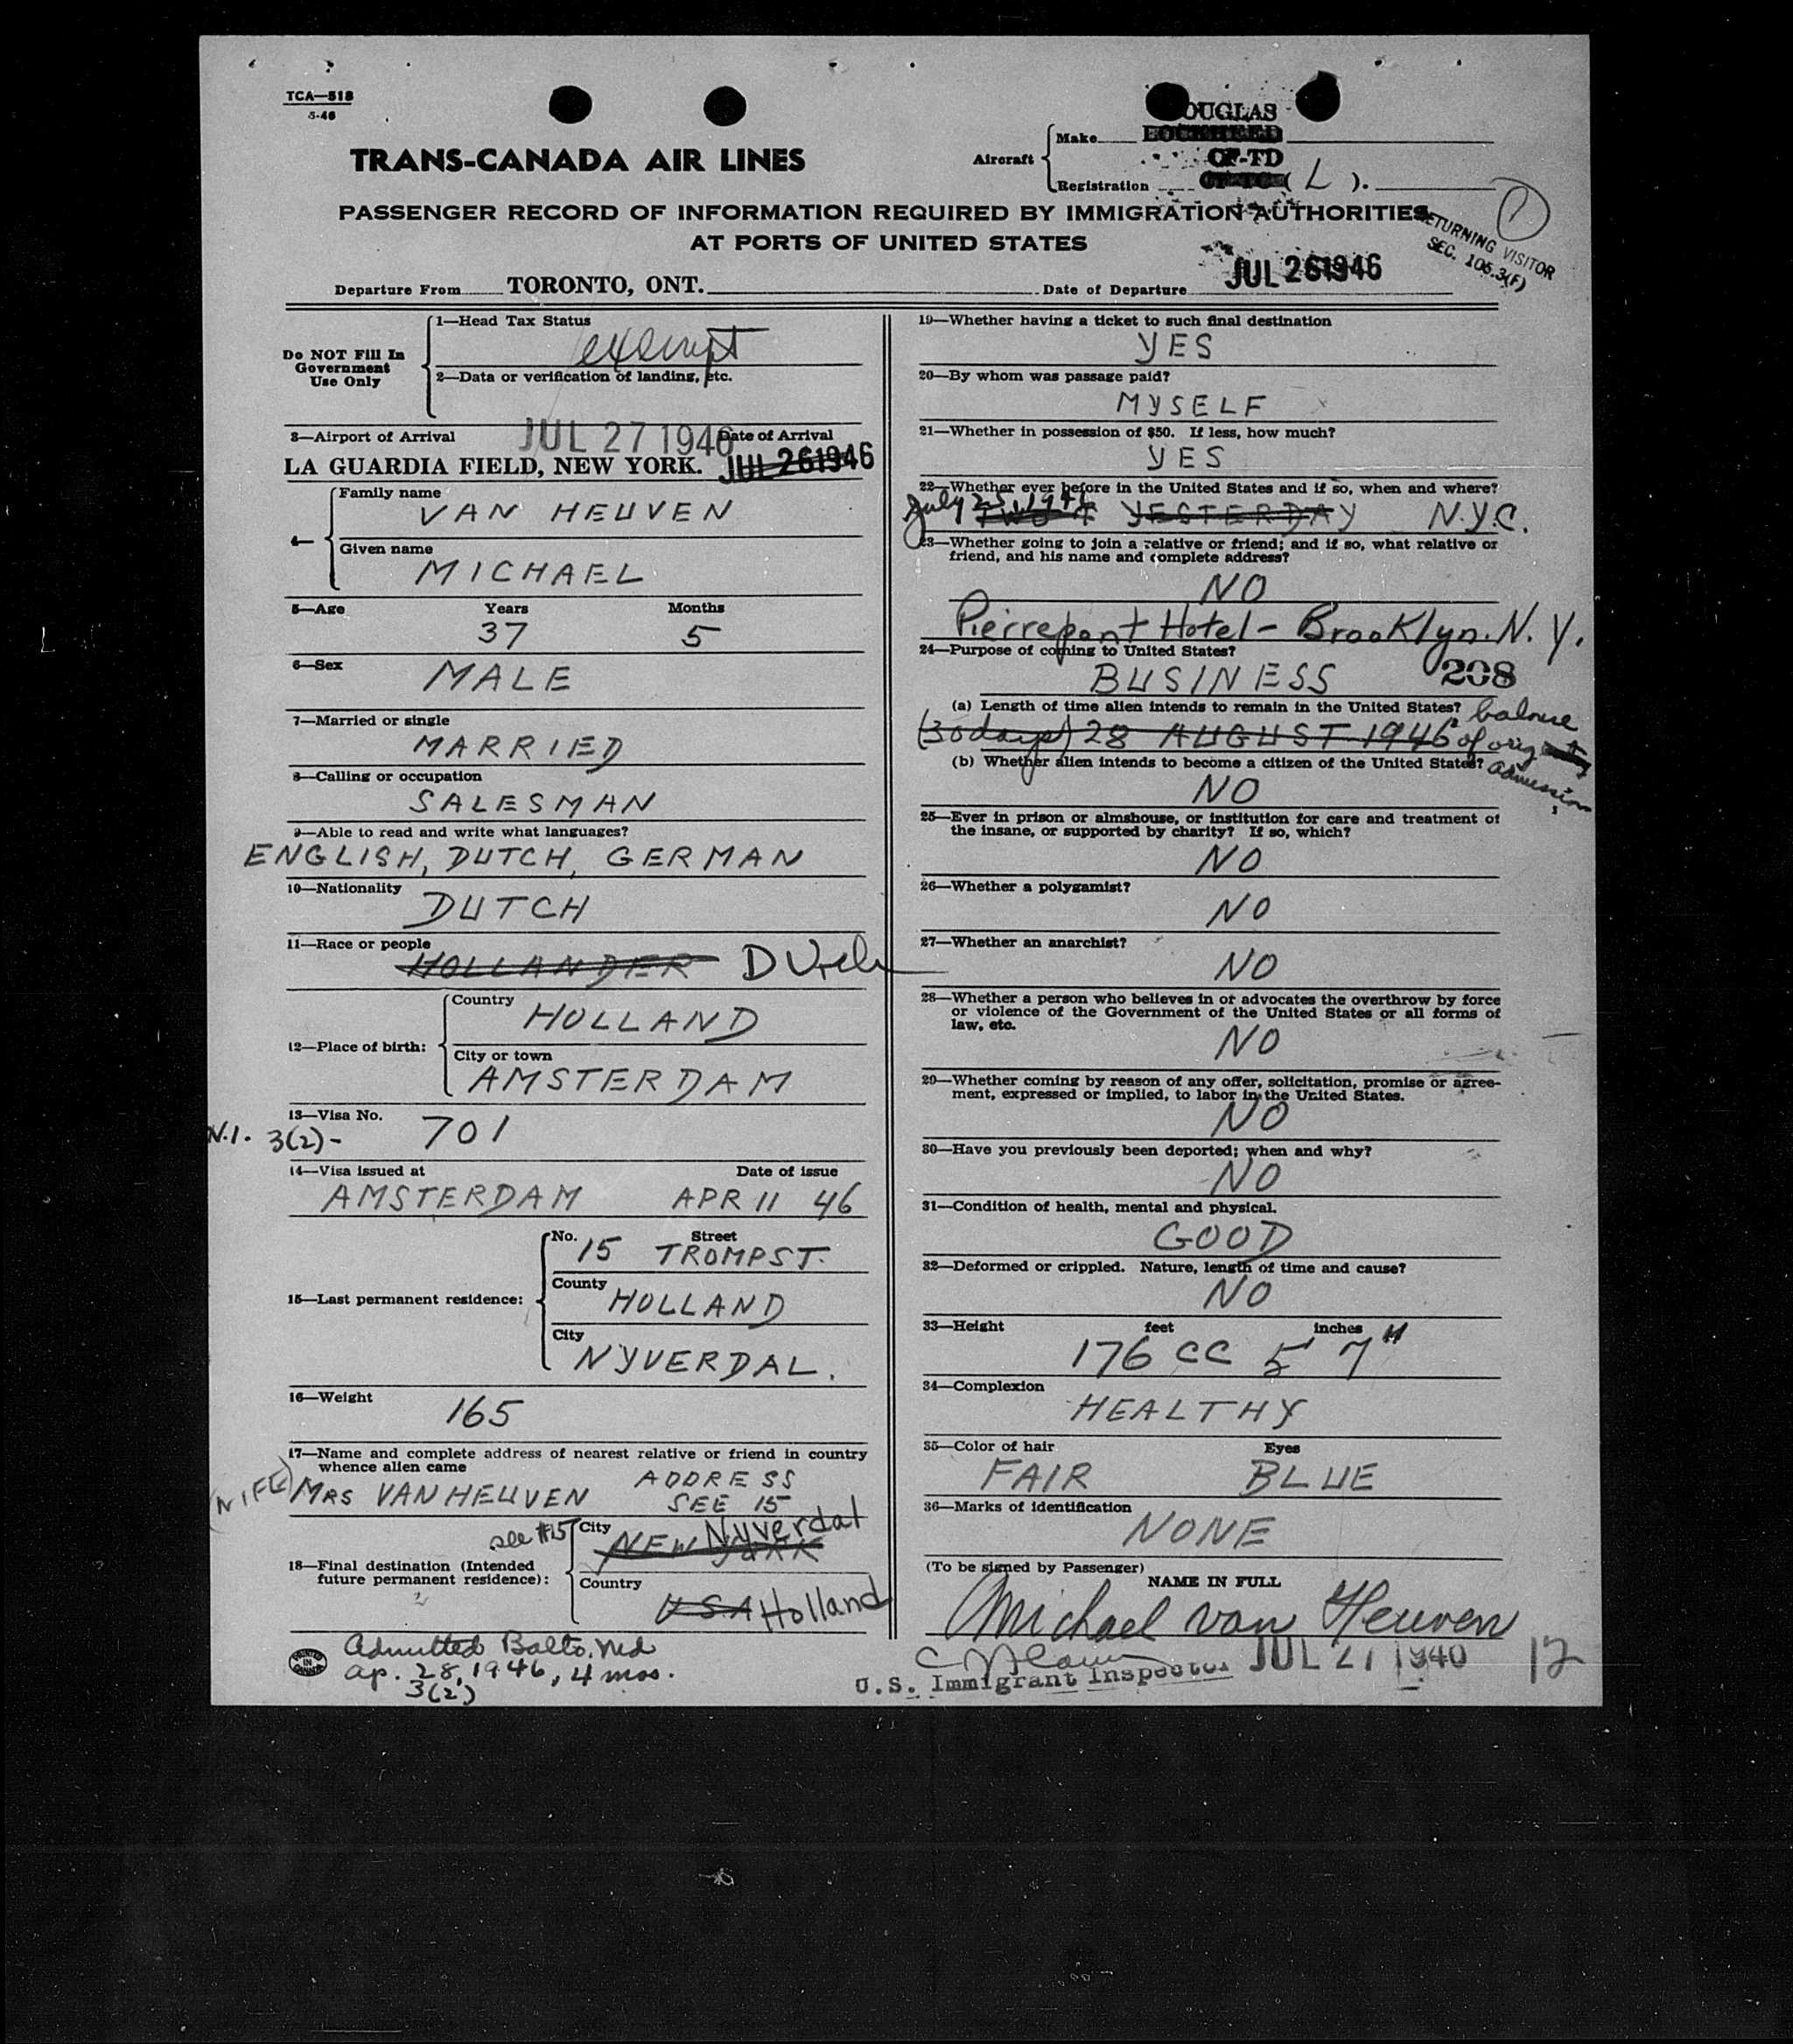 TCA—518
5-46
TRANS-CANADA AIR LINES
Aircraft
Make
OUGLAS
LOCKHEED
CF-TD
Registration
( L ).
1
PASSENGER RECORD OF INFORMATION REQUIRED BY IMMIGRATION AUTHORITIES
AT PORTS OF UNITED STATES
RETURNING VISITOR
SEC. 105.3(F)
Departure From TORONTO, ONT. Date of Departure JUL 26 1946
Do NOT Fill In
Government
Use Only
1—Head Tax Status
exempt
2—Data or verification of landing, etc.
3—Airport of Arrival JUL 27 1946 Date of Arrival
LA GUARDIA FIELD, NEW YORK. JUL 26 1946
4—
Family name
VAN HEUVEN
Given name
MICHAEL
5—Age Years Months
37 5
6—Sex
MALE
7—Married or single
MARRIED
8—Calling or occupation
SALESMAN
9—Able to read and write what languages?
ENGLISH, DUTCH, GERMAN
10—Nationality
DUTCH
11—Race or people
HOLLANDER DUtch
12—Place of birth:
Country
HOLLAND
City or town
AMSTERDAM
13—Visa No.
N.I. 3(2)- 701
14—Visa issued at Date of issue
AMSTERDAM APR 11 46
15—Last permanent residence:
No. Street
15 TROMPST.
County
HOLLAND
City
NYVERDAL.
16—Weight
165
17—Name and complete address of nearest relative or friend in country
whence alien came
(WIFE) MRS VAN HEUVEN ADDRESS
SEE 15
see #15
18—Final destination (Intended
future permanent residence):
City
NEW YORK Nyverdal
Country
U.S.A Holland
PRINTED IN CANADA
Admitted Balto. Md
ap. 28, 1946, 4 mos.
3(2)
19—Whether having a ticket to such final destination
YES
20—By whom was passage paid?
MYSELF
21—Whether in possession of $50. If less, how much?
YES
22—Whether ever before in the United States and if so, when and where?
July 25, 1946 YESTERDAY N.Y.C.
23—Whether going to join a relative or friend; and if so, what relative or
friend, and his name and complete address?
NO
Pierrepont Hotel - Brooklyn. N.Y.
24—Purpose of coming to United States?
BUSINESS 208
(a) Length of time alien intends to remain in the United States?
(30 days) 28 AUGUST 1946 balance of orig admission
(b) Whether alien intends to become a citizen of the United States?
NO
25—Ever in prison or almshouse, or institution for care and treatment of
the insane, or supported by charity? If so, which?
NO
26—Whether a polygamist?
NO
27—Whether an anarchist?
NO
28—Whether a person who believes in or advocates the overthrow by force
or violence of the Government of the United States or all forms of
law, etc.
NO
29—Whether coming by reason of any offer, solicitation, promise or agree-
ment, expressed or implied, to labor in the United States.
NO
30—Have you previously been deported; when and why?
NO
31—Condition of health, mental and physical.
GOOD
32—Deformed or crippled. Nature, length of time and cause?
NO
33—Height feet inches
176 CC 5' 7"
34—Complexion
HEALTHY
35—Color of hair Eyes
FAIR BLUE
36—Marks of identification
NONE
(To be signed by Passenger)
NAME IN FULL
Michael van Heuven
U.S. Immigrant Inspector JUL 27 1946 12